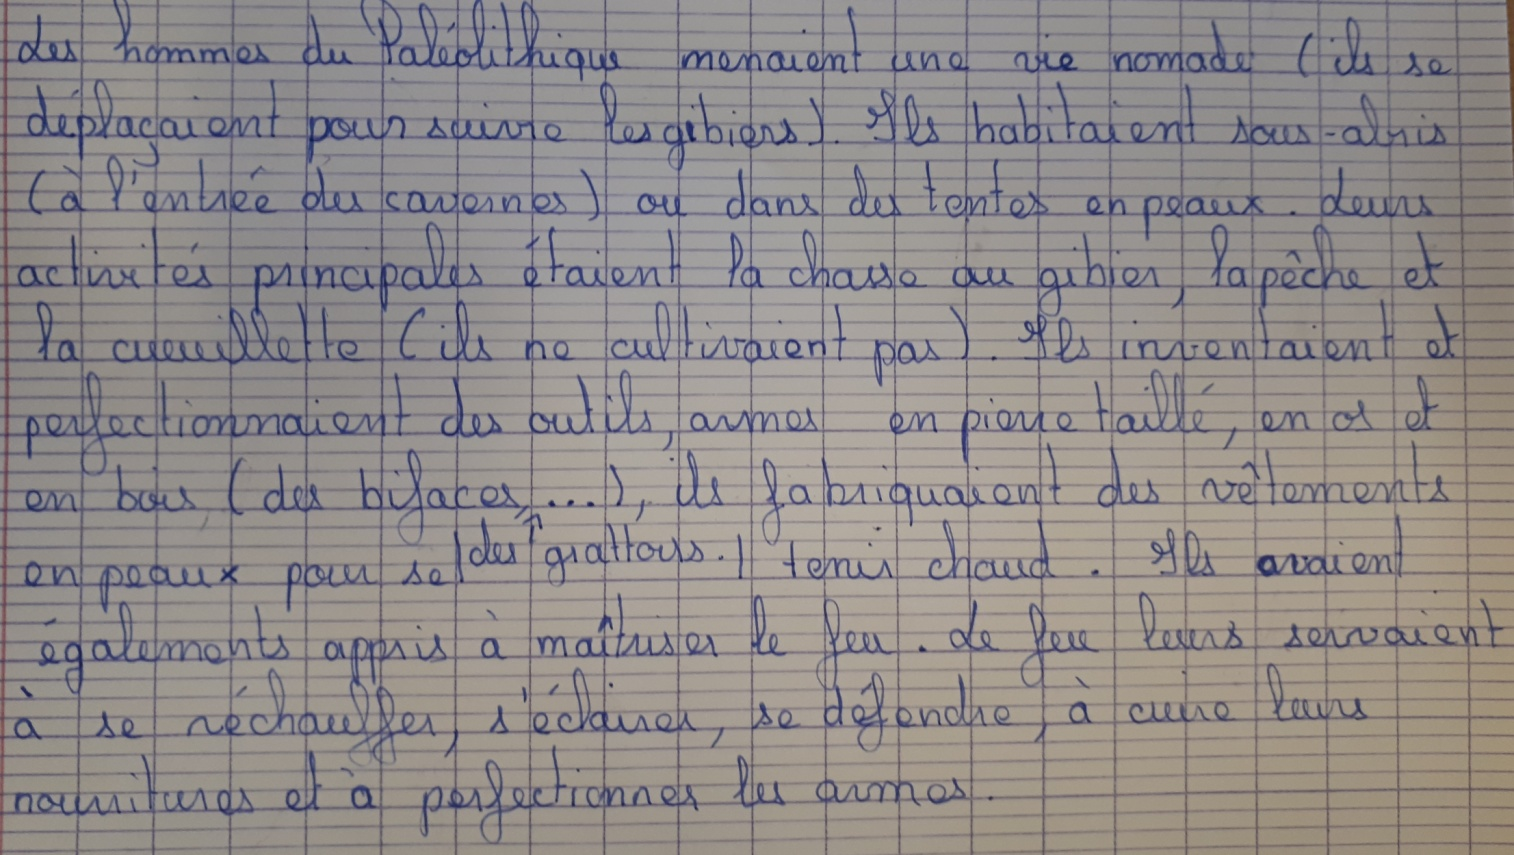 Les hommes du Paléolithique menaient une vie nomade (ils se
déplaçaient pour suivre les gibiers). Ils habitaient sous-abris
(à l'entrée des cavernes) ou dans des tentes en peaux. Leurs
activités principales étaient la chasse au gibier, la pêche et
la cueuillette (ils ne cultivaient pas). Ils inventaient et
perfectionnaient des outils, armes en pierre taillé, en os et
en bois (des bifaces, ...), ils fabriquaient des vêtements
des grattoirs.
en peaux pour se tenir chaud. Ils avaient
égalements appris à maîtriser le feu. Le feu leurs servaient
à se réchauffer, s'éclairer, se défendre, à cuire leurs
nourritures et à perfectionner les armes.